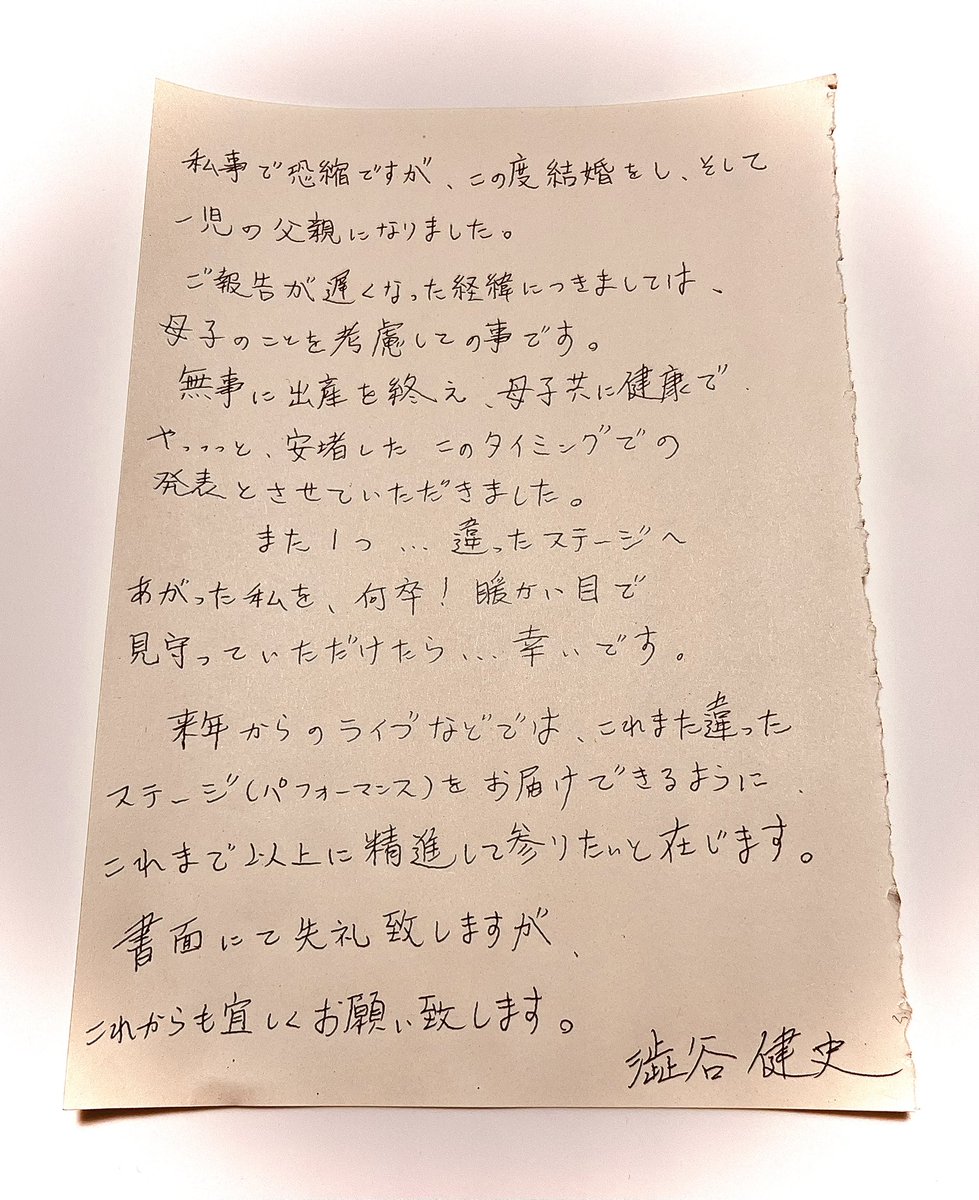 私事で恐縮ですが、この度結婚をし、そして
一児の父親になりました。
ご報告が遅くなった経緯につきましては、
母子のことを考慮しての事です。
無事に出産を終え、母子共に健康で、
やっっっと、安堵した このタイミングでの
発表とさせていただきました。
また1つ...違ったステージへ
あがった私を、何卒!暖かい目で
見守っていただけたら...幸いです。
来年からのライブなどでは、これまた違った
ステージ(パフォーマンス)をお届けできるように、
これまで以上に精進して参りたいと在じます。
書面にて失礼致しますが、
これからも宜しくお願い致します。
澁谷 健史